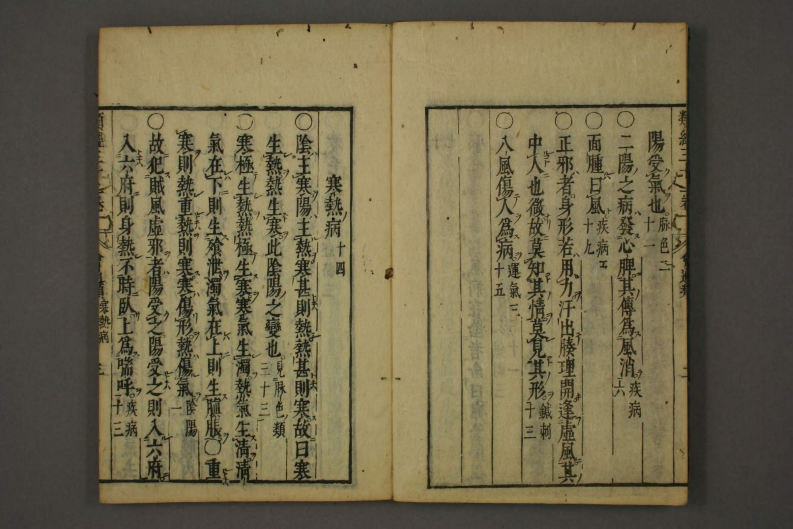 陽受氣也 脉色二十一
〇二陽之病發心脾其傳爲風消 疾病六
〇面腫曰風 疾病 十九
〇正邪者身形若用力汗出腠理開逢虛風其
中人也微故莫知其情莫見其形 鍼刺十三
〇八風傷人爲病 運氣三十五
寒熱病 十四
〇陰主寒陽主熱寒甚則熱熱甚則寒故曰寒
生熱熱生寒此陰陽之變也 見脉色類三十三
〇寒極生熱熱極生寒寒氣生濁熱氣生清清
氣在下則生飧泄濁氣在上則生䐜脹〇重
寒則熱重熱則寒寒傷形熱傷氣 陰陽一
〇故犯賊風虛邪者陽受之陽受之則入六府
入六府則身熱不時臥上爲喘呼 疾病十三